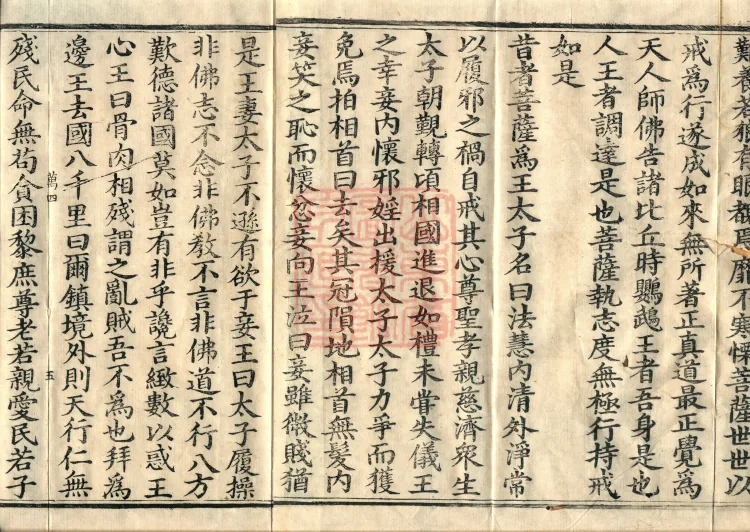 難養若稱有眼都
戒為行遂成如來無所著正真道最正覺為
天人師佛告諸比丘時鸚鵡王者吾身是也
人王者調達是也菩薩執志度無極行持戒
如是
昔者菩薩為王太子名曰法慧內清外淨常
以履邪之禍自戒其心尊聖孝親慈濟眾生
太子朝覲轉頃相國進退如禮未甞失儀王
之幸妾內懷邪婬出援太子太子力爭而獲
免焉拍相首曰去矣其冠隕地相首無髮內
妾笑之恥而懷忿妾向王泣曰妾雖微賤猶
是王妻太子不遜有欲于妾王曰太子履操
非佛志不念非佛教不言非佛道不行八方
歎德諸國莫如豈有非乎讒言緻數以惑王
心王曰骨肉相殘謂之亂賊吾不為也拜為
邊王去國八千里曰爾鎮境外則天行仁無
萬四
五
殘民命無苟貪困黎庶尊老若親愛民若子